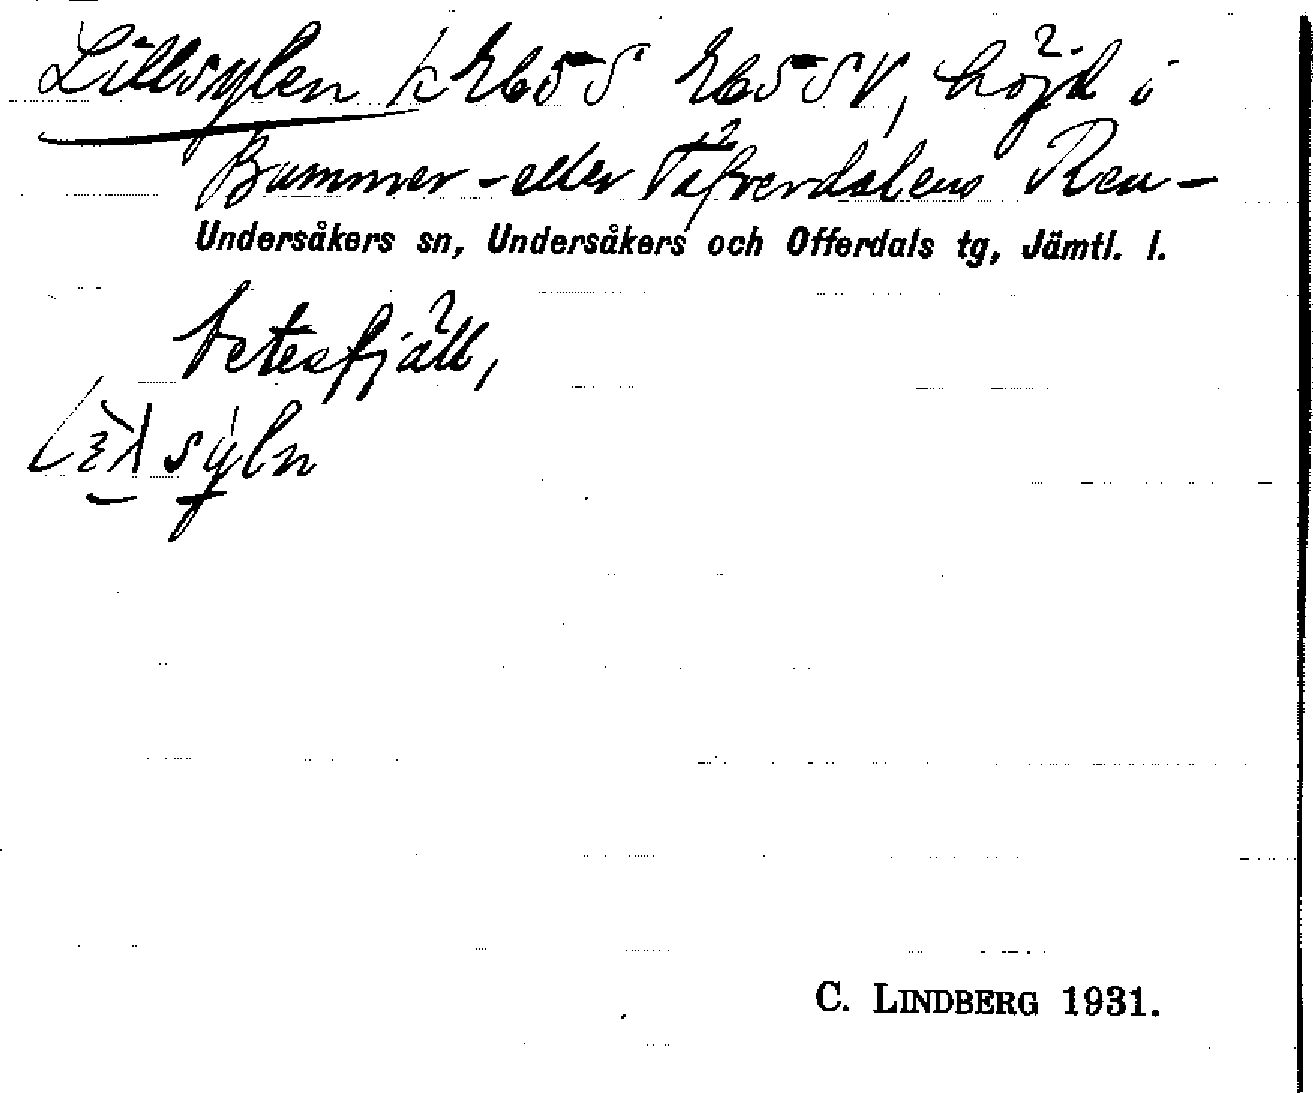 Lillsylen k 265 S 265 SV, höjd i
Bummer- eller Täfverdalens Ren-
Undersåkers sn, Undersåkers och Offerdals tg, Jämtl. l.
betesfjäll,
syln
C. LINDBERG 1931.